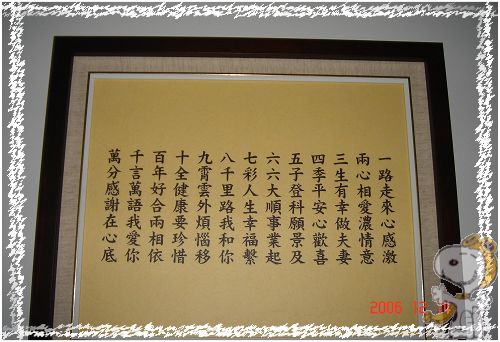 一路走來心感激
兩心相愛濃情意
三生有幸做夫妻
四季平安心歡喜
五子登科願景及
六六大順事業起
七彩人生幸福繫
八千里路我和你
九霄雲外煩惱移
十全健康要珍惜
百年好合兩相依
千言萬語我愛你
萬分感謝在心底
2006 12